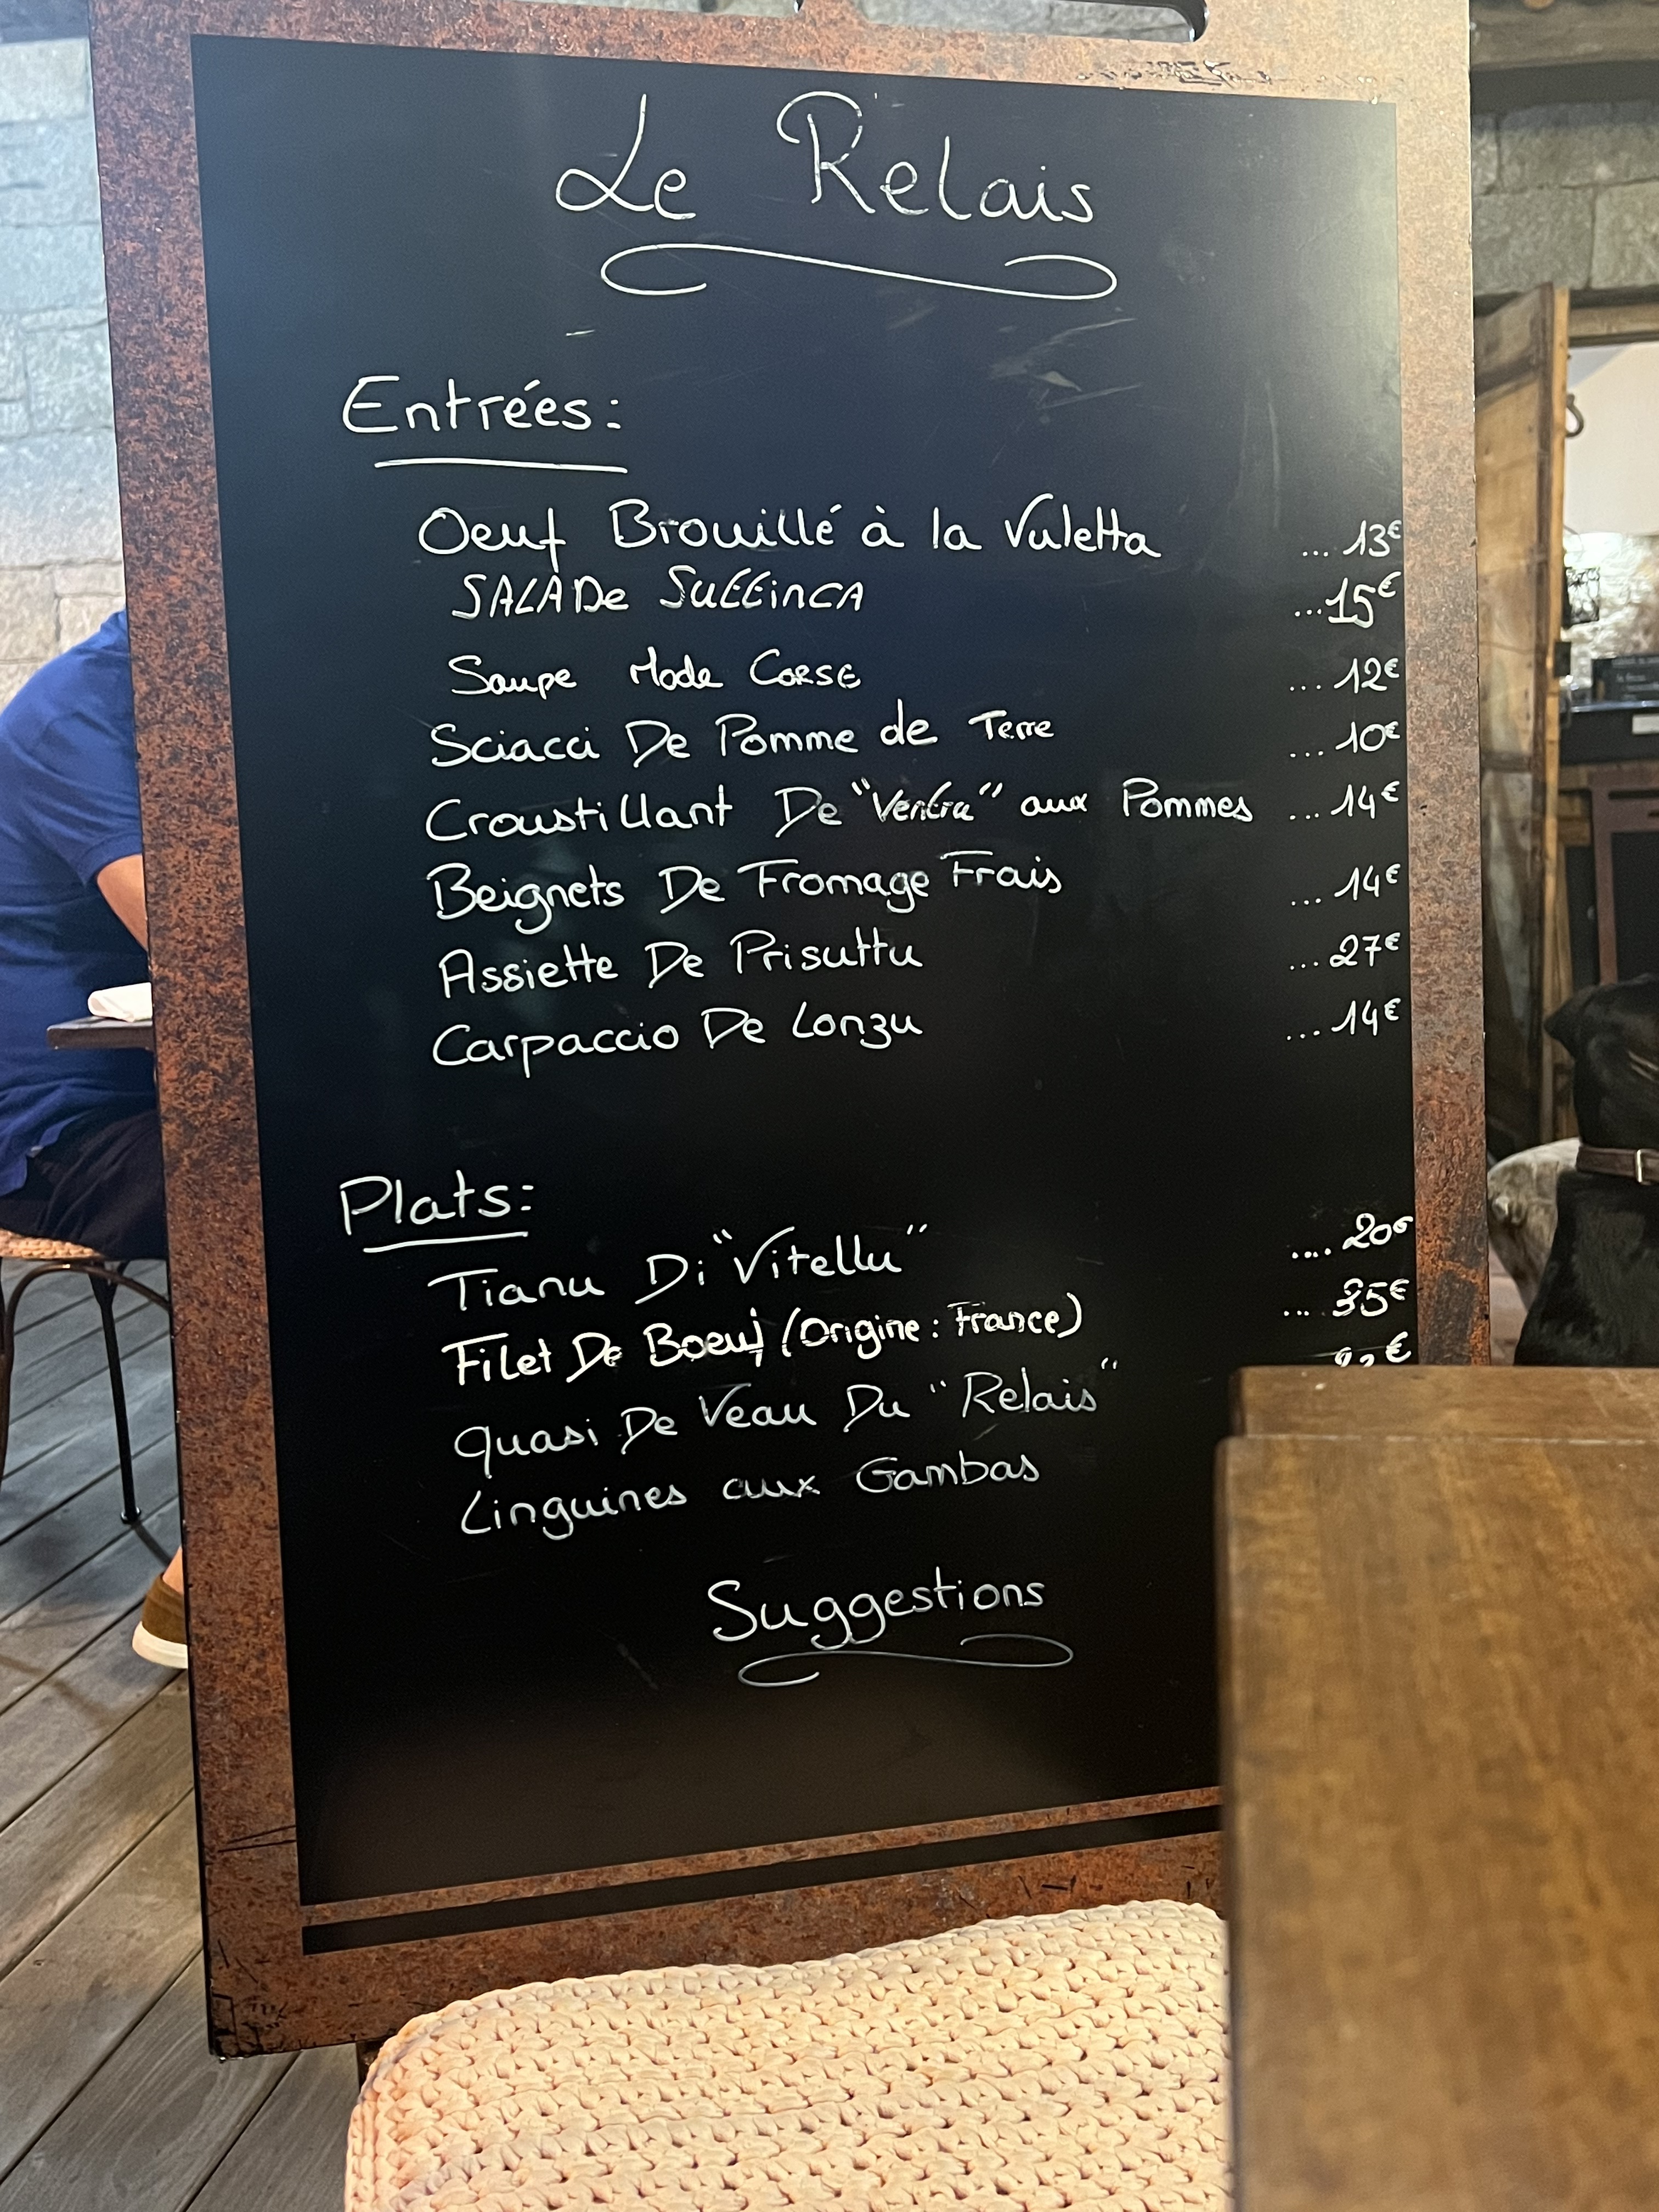 Le Relais
Entrées:
Oeuf Brouillé à la Vuletta ... 13€
SALADe SuLLinCA ...15€
Soupe Mode CORSE ... 12€
Sciacci De Pomme de Terre ... 10€
Croustillant De "Ventra" aux Pommes ... 14€
Beignets De Fromage Frais ... 14€
Assiette De Prisuttu ... 27€
Carpaccio De Lonzu ... 14€
Plats:
Tianu Di "Vitellu" .... 20€
Filet De Boeuf (Origine: France) ... 35€
Quasi De Veau Du "Relais" €
Linguines aux Gambas
Suggestions